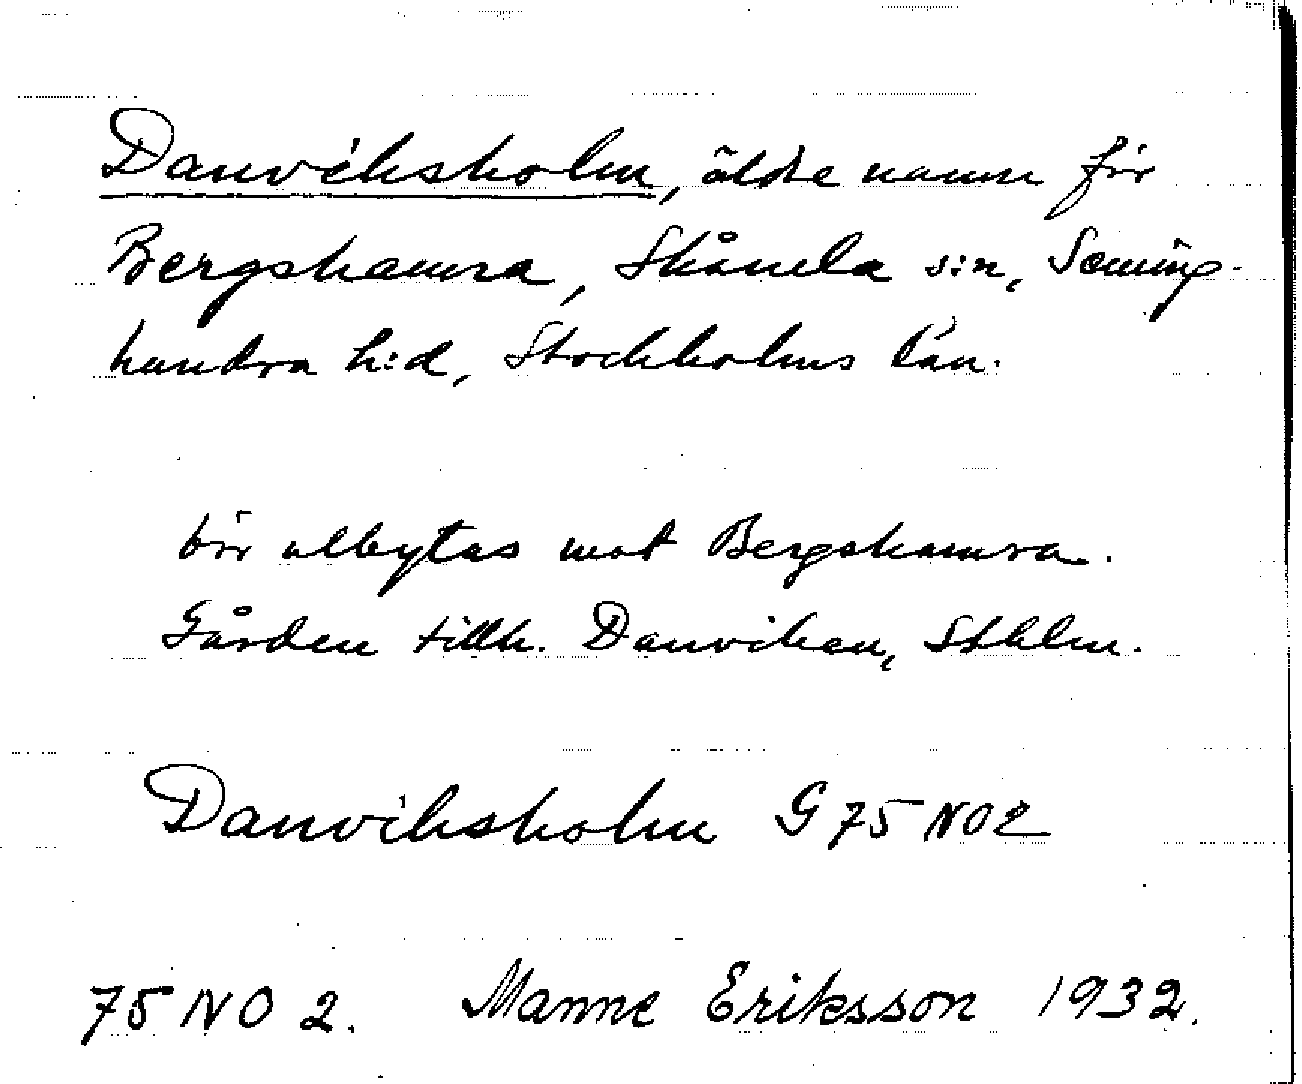 Danviksholm, äldre namn för
Bergshamra, Skånela s:n, Seming-
hundra h:d, Stockholms län.
bör utbytas mot Bergshamra.
Gården tillh. Danviken, Sthlm.
Danviksholm G 75 NO2
75 NO 2. Manne Eriksson 1932.